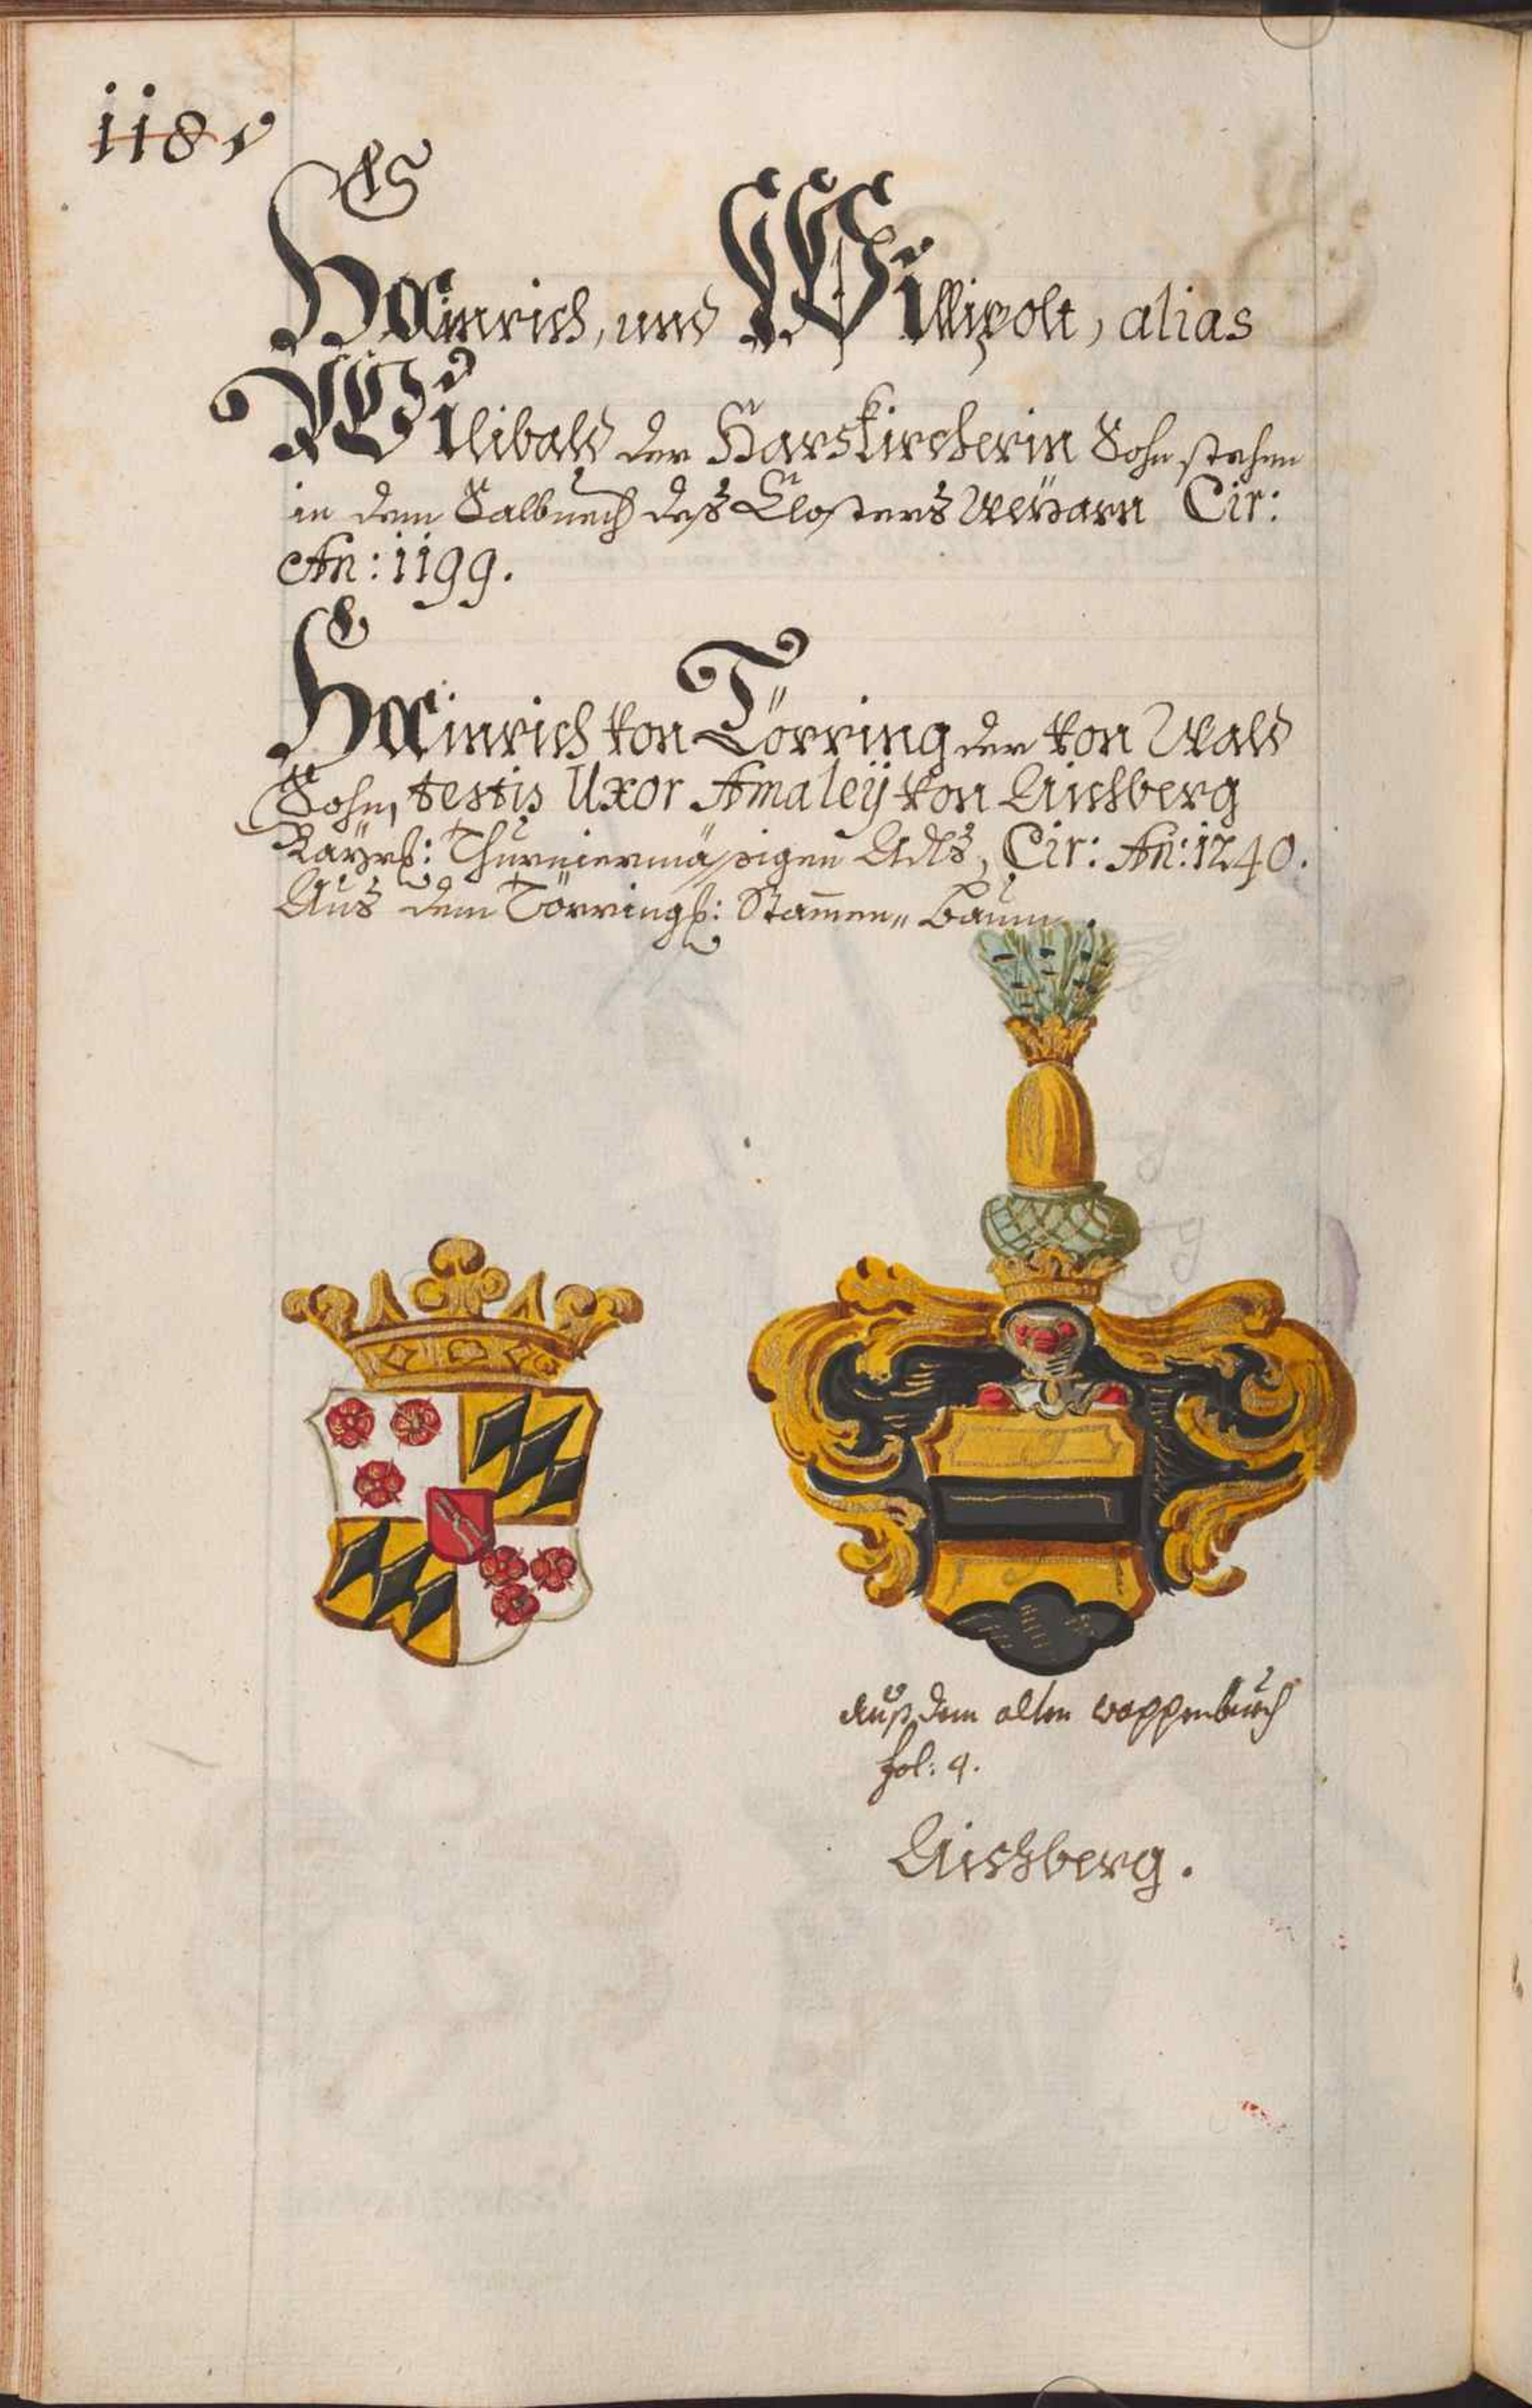 118v
Hainrich, und Willipolt, alias
Wilibald der Harskircherin Sohn stehen
in dem Salbuech deß Closters Weÿarn Cir:
An: 1199.
Hainrich von Törring der von Wald
Sohn, testis Uxor Amaleÿ von Aichberg
Bayrß: Thurniermäßigen Adls, Cir: An: 1240.
Aus dem Törringß: Stam̄en„ Baum.
Auß dem alten wappenbuech
fol: 9.
Aichberg.